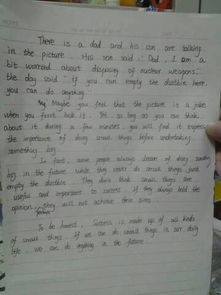 There is a dad and his son are talking
in the picture. His son said: "Dad, I am a
bit worried about disposing of nuclear weapons."
the day said "If you can empty the dustbin here,
you can do anything."
Maybe you feel that the picture is a joke
when you first look it. Yet, so long as you think
about it during a few minutes, you will find it express
the importance of doing small things before undertaking
something big.
In fact, some people always dream of doing something
big in the future while they never do small things just
empty the dustbin. They don't think small things are
useful and important to success. If they always hold this
opinion, they will not achieve their aims
To be honest, Success is made up of all kinds
of small things. If we can do small things in our daily
life, we can do anything in the future.